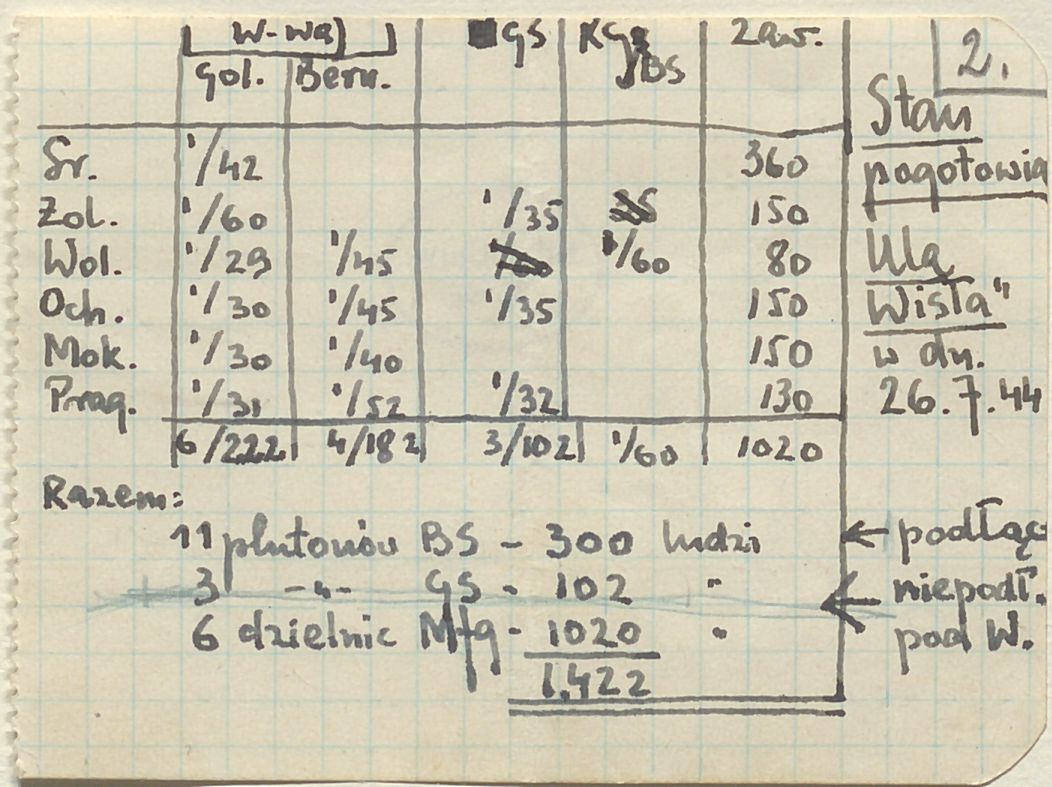 W-wa GS KGs 2aw. 2.
Gol. Bern. /BS
Stan
Śr. 1/42 360 pogotowia
Żol. 1/60 1/35 35 150
Wol. 1/29 1/45 1/60 80 Ula
Och. 1/30 1/45 1/35 150 Wisła"
Mok. 1/30 1/40 150 w dn.
Prag. 1/31 1/52 1/32 130 26.7.44
6/222 4/182 3/102 1/60 1020
Razem:
11 plutonów BS - 300 ludzi ← podłącz
3 -"- GS - 102 " ← niepodł.
6 dzielnic Mfg - 1020 " pod W.
1.422